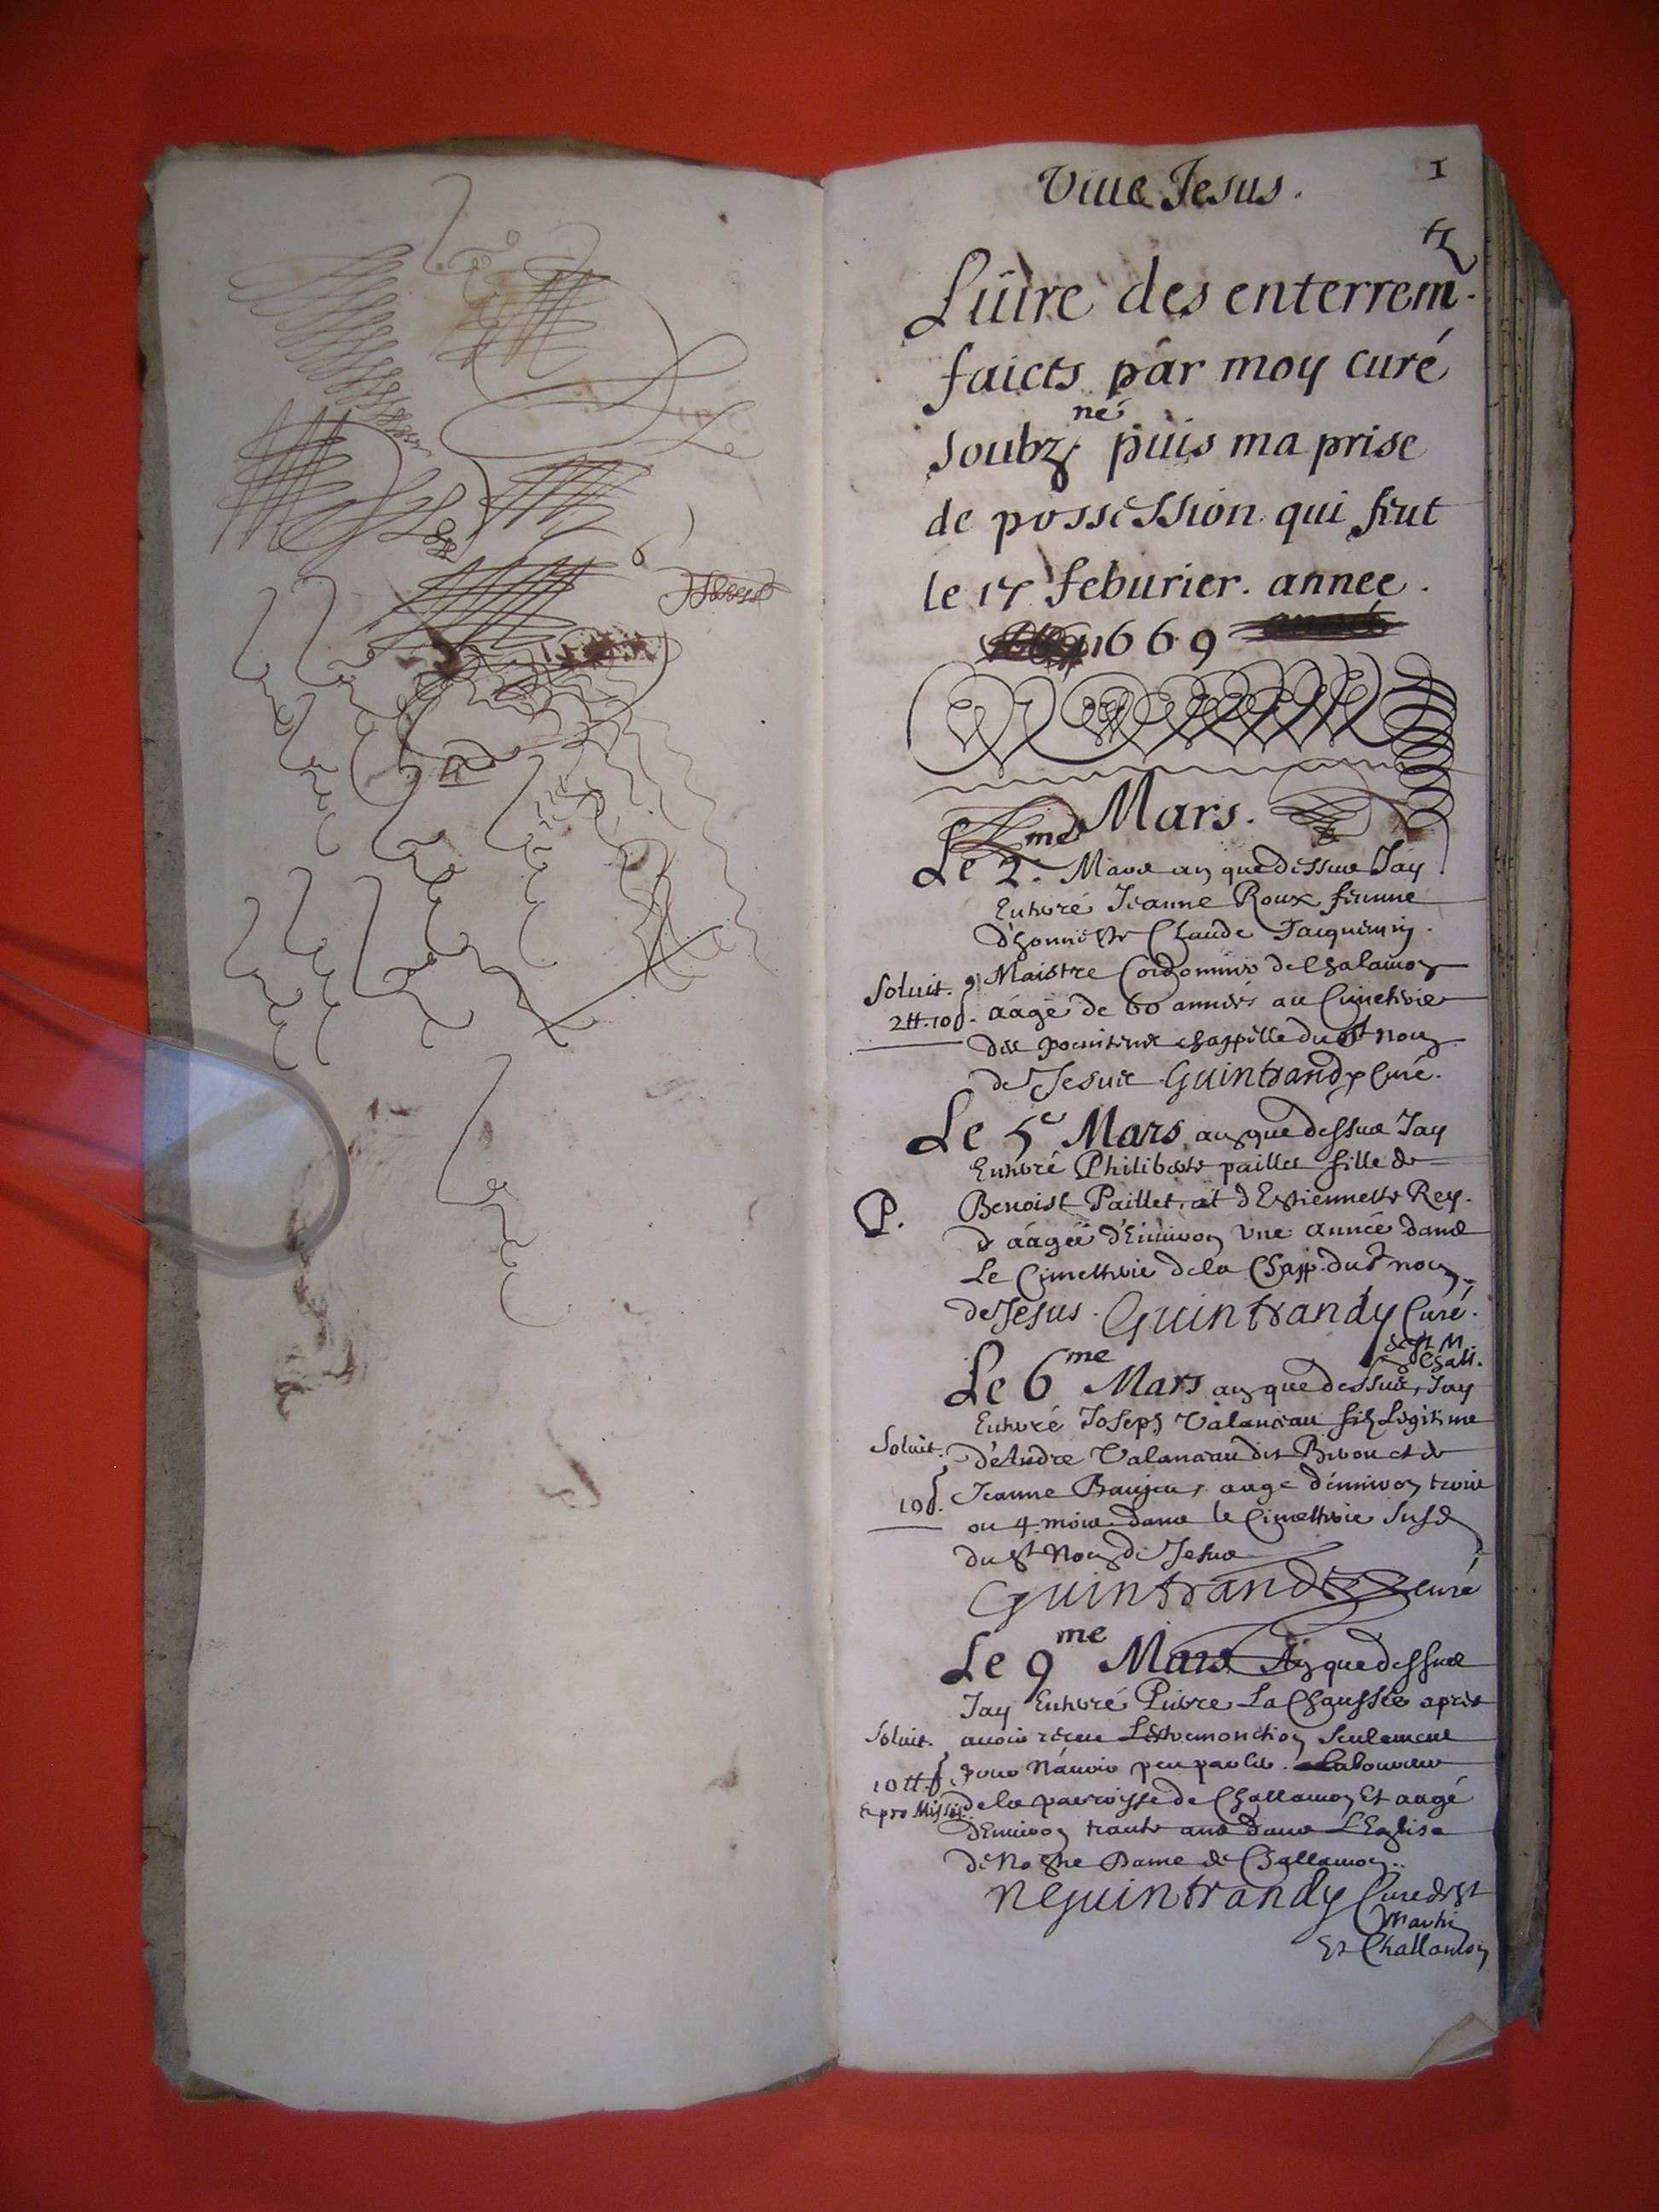 Viue Jesus.
1
Liure des enterremtz
faicts par moy curé
soubzné puis ma prise
de possession qui feut
le 17 feburier. annee.
1669
Mars.
Le 2.me Mars an que dessus Jay
Enterré Jeanne Roux femme
d'honneste Claude Jacquemin.
Maistre Cordonnier de Chalamon
Soluit.
2tt.10s.
aagé de 60 années au Cimetiere
des penitens chappelle du St nom
de Jesus Guintrandy Curé.
Le 5e Mars an que dessus Jay
Enterré Philiberte paillet fille de
P.
Benoist Paillet, et d'Estiennette Rey.
aagée d'Enuiron Vne année dans
Le Cimettiere de la Chapp. du St nom
de Jesus. Guintrandy Curé.
de St M.
Chall.
Le 6me Mars an que dessus, Jay
Enterré Joseph Valanceau filz Legitime
Soluit.
d'Andre Valanceau dit Biuon et de
10s.
Jeanne Baujeu, aagé d'enuiron trois
ou 4. mois dans le Cimettiere Susd
du St Nom de Jesus
Guintrandy curé
Le 9me Mars An que dessus
Jay Enterré Pierre La Chaussée apres
Soluit.
auoir receu L'extremonction Seulement
10tt
pour N'auoir peu parler. Laboureur
& pro Missis.
de la parroisse de Challamon Et aagé
d'Enuiron trante ans dans L'Eglise
de Nostre Dame de Challamon..
NGuintrandy Curé de St
Martin
Et Challamon